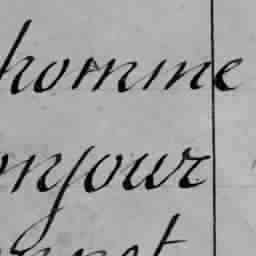 homme
onjour